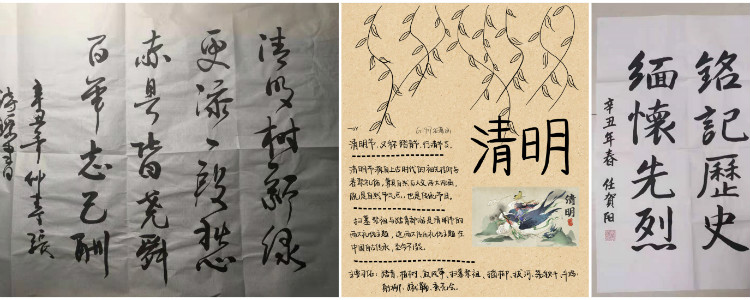 清明树新绿
更添一段愁
赤县皆尧舜
百年志已酬
辛丑年仲春張
清明
清明节，又称踏青节、行清节。
清明节源自上古时代的祖先信仰与
春祭礼俗，兼具自然与人文两大内涵，
既是自然节气点，也是传统节日。
扫墓祭祖与踏青郊游是清明节的
两大礼俗主题，这两大传统礼俗主题在
中国自古传承，至今不辍。
主要习俗：踏青、植树、放风筝、扫墓祭祖、插柳、拔河、荡秋千、斗鸡
射柳、蹴鞠、蚕花会。
清明
铭记歷史
缅懷先烈
辛丑年春 任賀阳